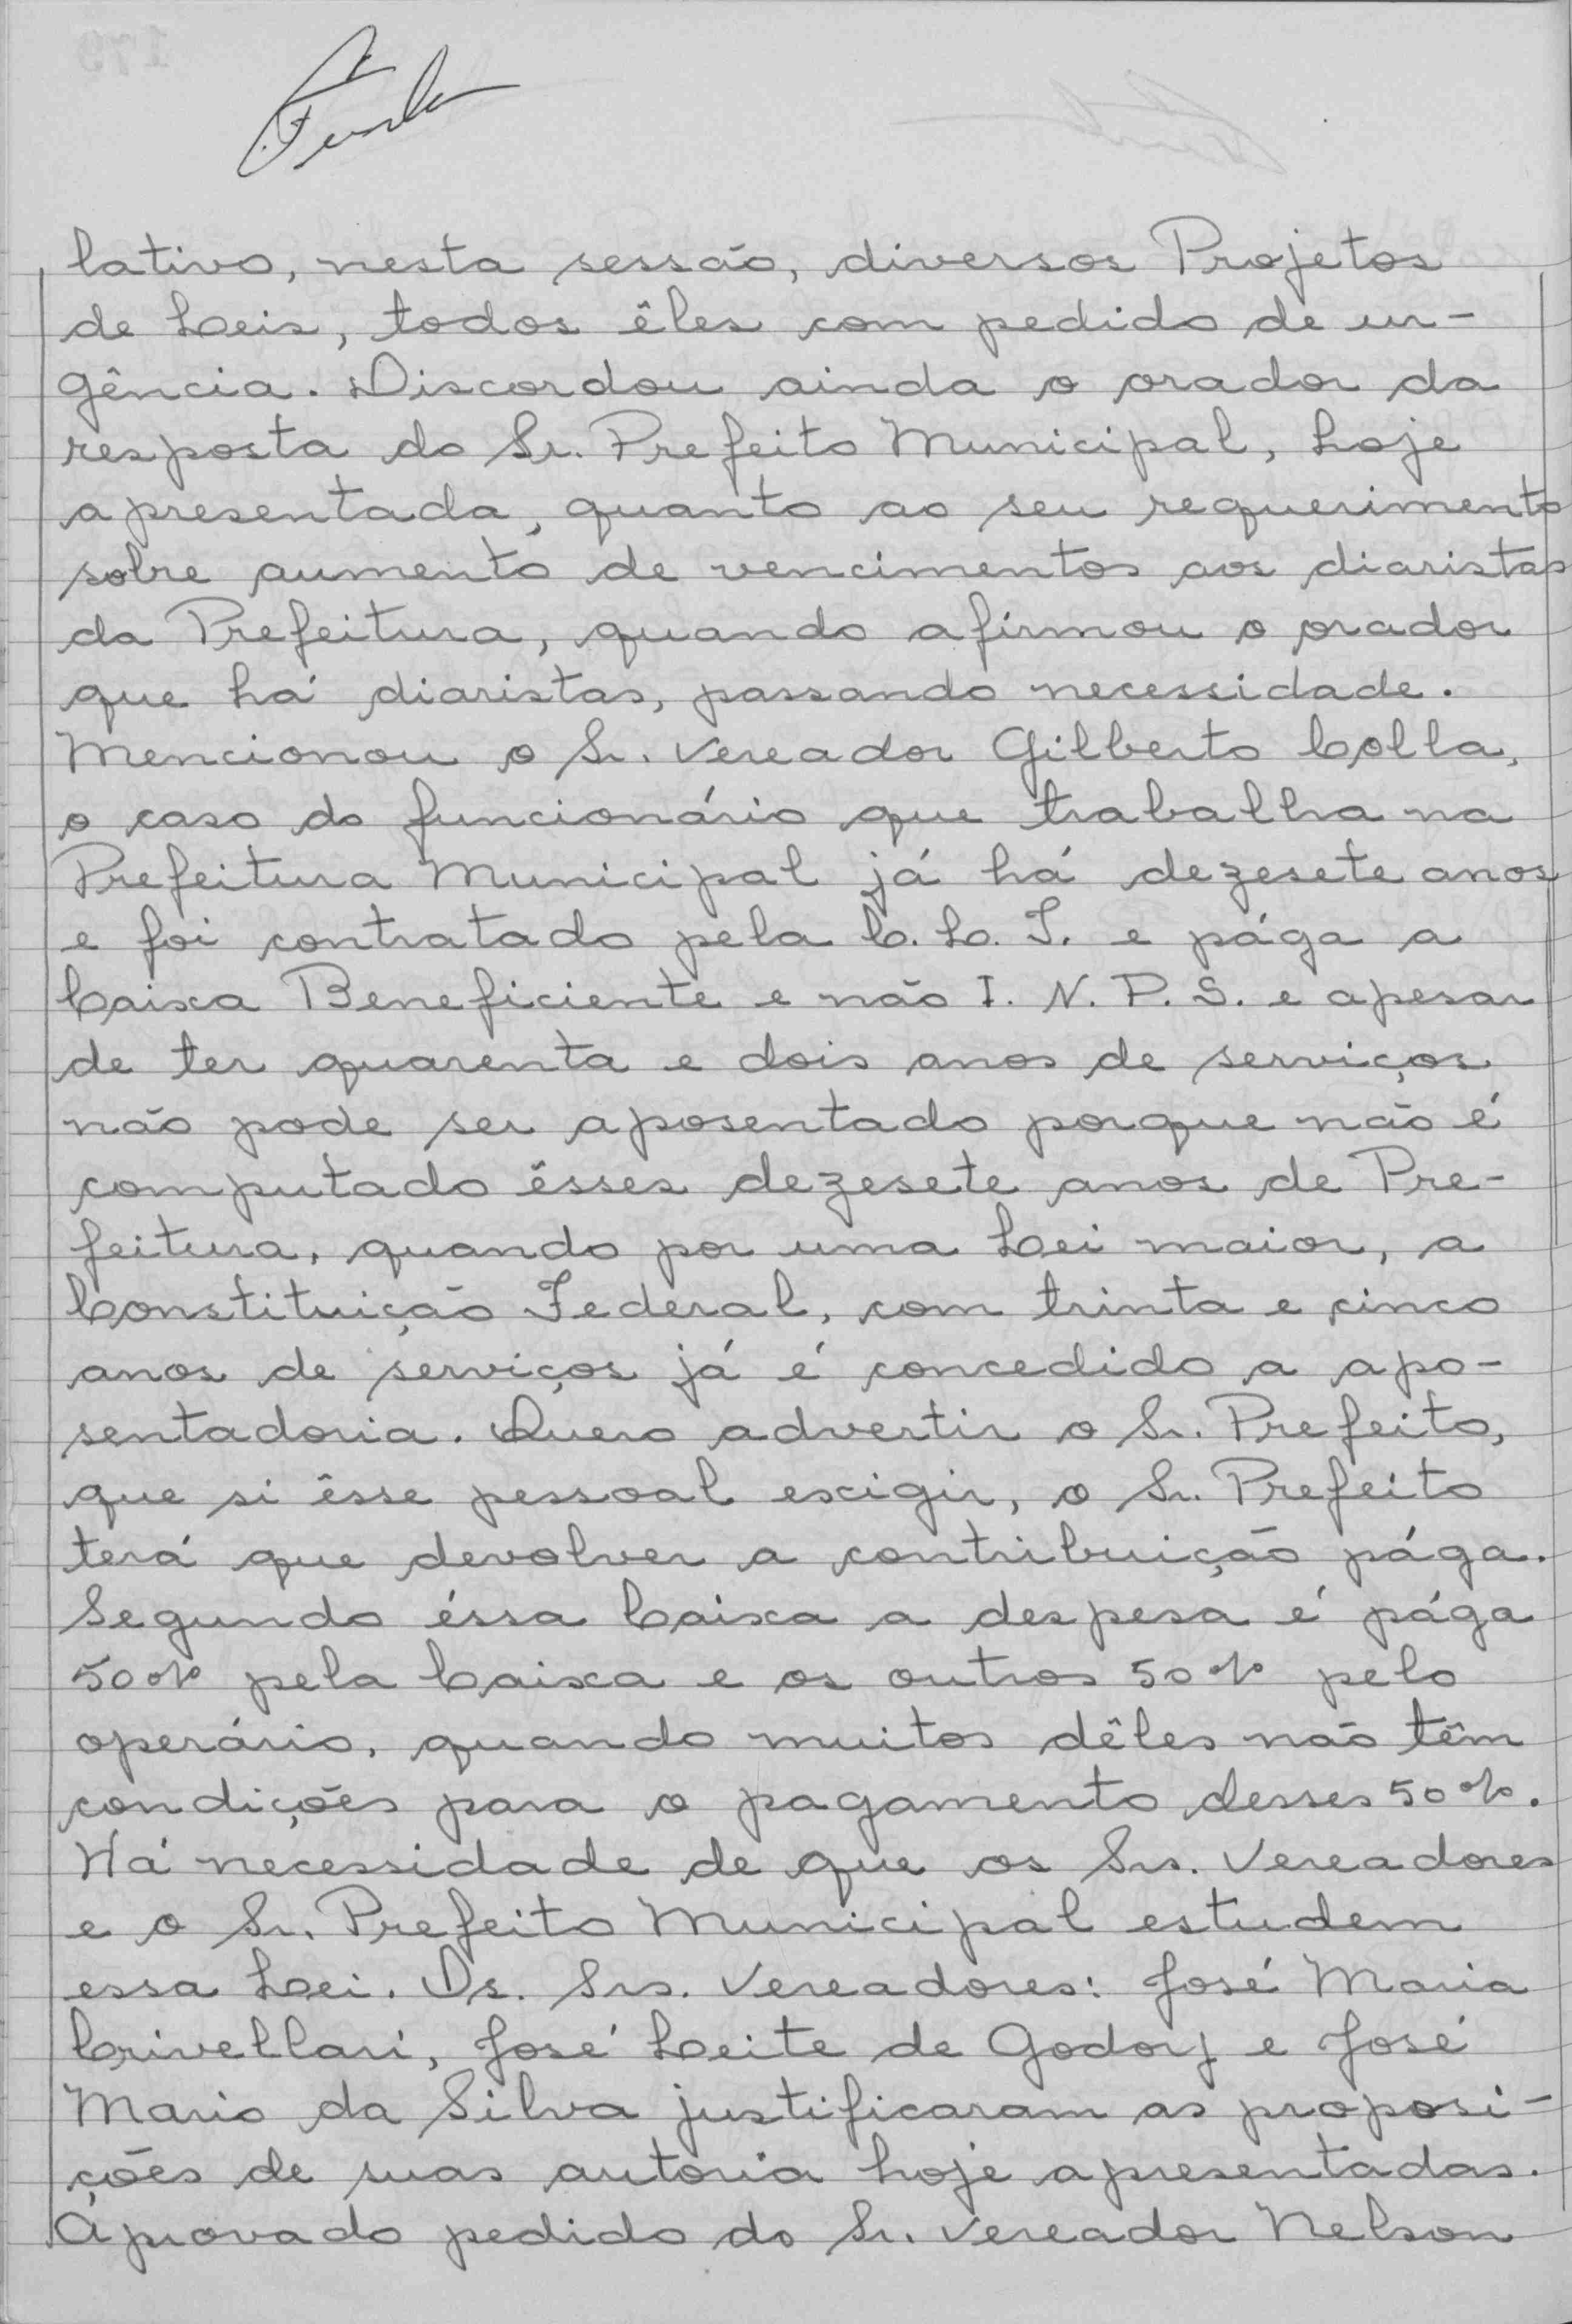 lativo, nesta sessão, diversos Projetos
de Leis, todos êles com pedido de ur-
gência. Discordou ainda o orador da
resposta do Sr. Prefeito Municipal, hoje
apresentada, quanto ao seu requerimento
sobre aumento de vencimentos aos diaristas
da Prefeitura, quando afirmou o orador
que há diaristas, passando necessidade.
Mencionou o Sr. Vereador Gilberto Colla,
o caso do funcionário que trabalha na
Prefeitura Municipal já há dezesete anos
e foi contratado pela C. L. T. e pága a
Caixa Beneficiente e não I. N. P. S. e apesar
de ter quarenta e dois anos de serviços
não pode ser aposentado porque não é
computado êsses dezesete anos de Pre-
feitura, quando por uma Lei maior, a
Constituição Federal, com trinta e cinco
anos de serviços já é concedido a apo-
sentadoria. Quero advertir o Sr. Prefeito,
que si êsse pessoal exigir, o Sr. Prefeito
terá que devolver a contribuição pága.
Segundo éssa Caixa a despesa é pága
50% pela Caixa e os outros 50% pelo
operário, quando muitos dêles não têm
condições para o pagamento desses 50%.
Há necessidade de que os Srs. Vereadores
e o Sr. Prefeito Municipal estudem
essa Lei. Os. Srs. Vereadores: José Maria
Crivellari, José Leite de Godoy e José
Mario da Silva justificaram as proposi-
ções de suas autoria hoje apresentadas.
Aprovado pedido do Sr. Vereador Nelson